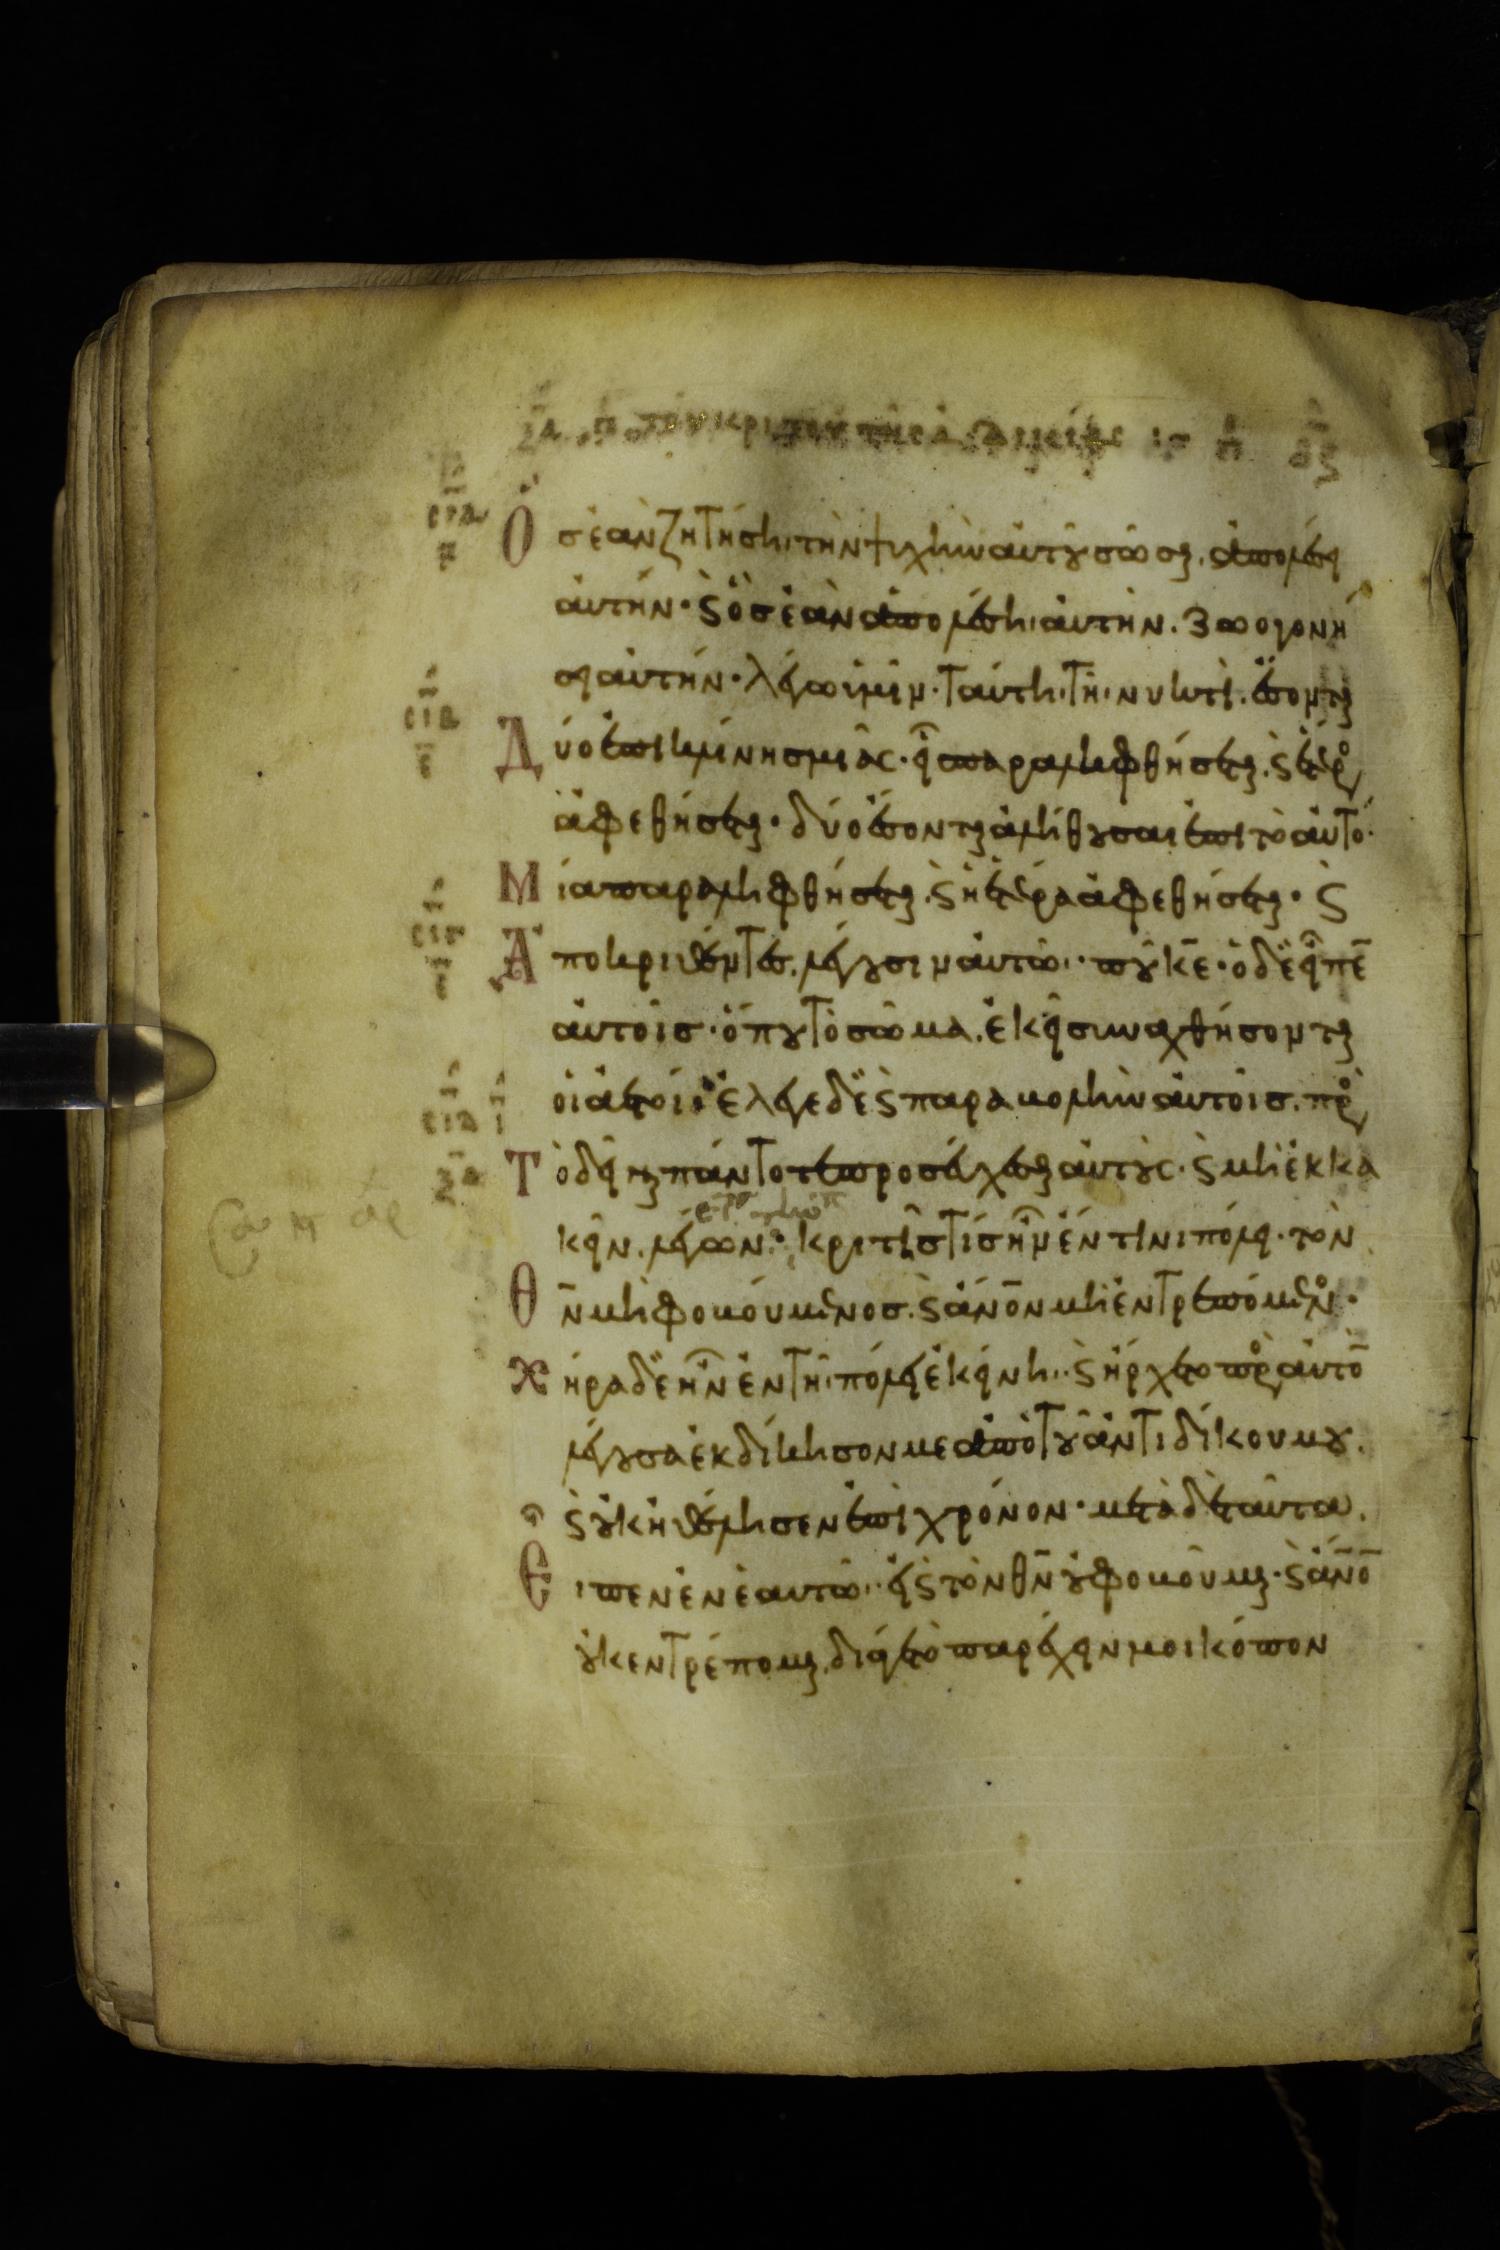 περὶ τοῦ κριτοῦ τῆς ἀδικίας
Ὃσ ἐὰν ζητήσηι τὴν ψυχὴν αὐτοῦ σῶσαι. ἀπολέσει
αὐτήν· καὶ ὃσ ἐὰν ἀπολέσηι αὐτὴν. ζωογονή
σει αὐτήν· λέγω ὑμῖν. ταύτηι τῆι νυκτὶ. ἔσονται
Δύο ἐπὶ κλίνησ μιᾶς· εἷς παραληφθήσεται. καὶ ὁ ἕτερος
ἀφεθήσεται· δύο ἔσονται ἀλήθουσαι ἐπὶ τὸ αὐτό·
Μία παραληφθήσεται. καὶ ἡ ἑτέρα ἀφεθήσεται· καὶ
Ἀποκριθέντεσ. λέγουσιν αὐτῶι· ποῦ κε̄· ὁ δὲ εἶπεν
αὐτοῖσ· ὅπου τὸ σῶμα. ἐκεῖ συναχθήσονται
οἱ ἀετοί· ἔλεγε δὲ καὶ παραβολὴν αὐτοῖσ. πρὸς
Τὸ δεῖν πάντοτε προσεύχεσθαι αὐτούς· καὶ μὴ ἐκκα
κεῖν. λέγων· κριτήσ τίσ ἦν ἔν τινι πόλει· τὸν
Θν̄ μὴ φοβούμενοσ. καὶ ἄνον̄ μὴ ἐντρεπόμενος·
Χήρα δὲ ἦν ἐν τῆι πόλει ἐκείνηι· καὶ ἤρχετο πρὸς αὐτὸν
λέγουσα ἐκδίκησόν με ἀπὸ τοῦ ἀντιδίκου μου.
καὶ οὐκ ἠθέλησεν ἐπὶ χρόνον· μετὰ δὲ ταῦτα.
Εἶπεν ἐν ἑαυτῶι· εἰ καὶ τὸν θν̄ οὐ φοβοῦμαι· καὶ ἄνον̄
οὐκ ἐντρέπομαι. διά γε τὸ παρέχειν μοι κόπον